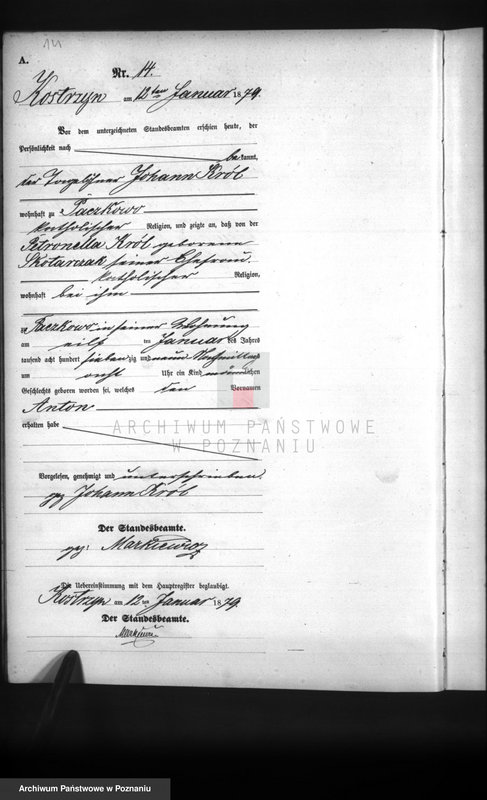 14
A.
Nr. 14.
Kostrzyn am 12ten Januar 1879.
Vor dem unterzeichneten Standesbeamten erschien heute, der
Persönlichkeit nach bekannt,
der Tagelöhner Johann Król
wohnhaft zu Paczkowo
katholischer Religion, und zeigte an, daß von der
Petronella Król geborenen
Skotarczak seiner Ehefrau
katholischer Religion,
wohnhaft bei ihm
zu Paczkowo in seiner Wohnung
am eilf ten Januar des Jahres
tausend acht hundert siebenzig und neun Nachmittag
um acht Uhr ein Kind männlichen
Geschlechts geboren worden sei, welches den Vornamen
Anton
erhalten habe
ARCHIWUM PAŃSTWOWE
W POZNANIU
Vorgelesen, genehmigt und unterschrieben.
gez Johann Król
Der Standesbeamte.
gez: Markiewicz
Die Uebereinstimmung mit dem Hauptregister beglaubigt.
Kostrzyn am 12 ten Januar 1879.
Der Standesbeamte.
Archiwum Państwowe w Poznaniu